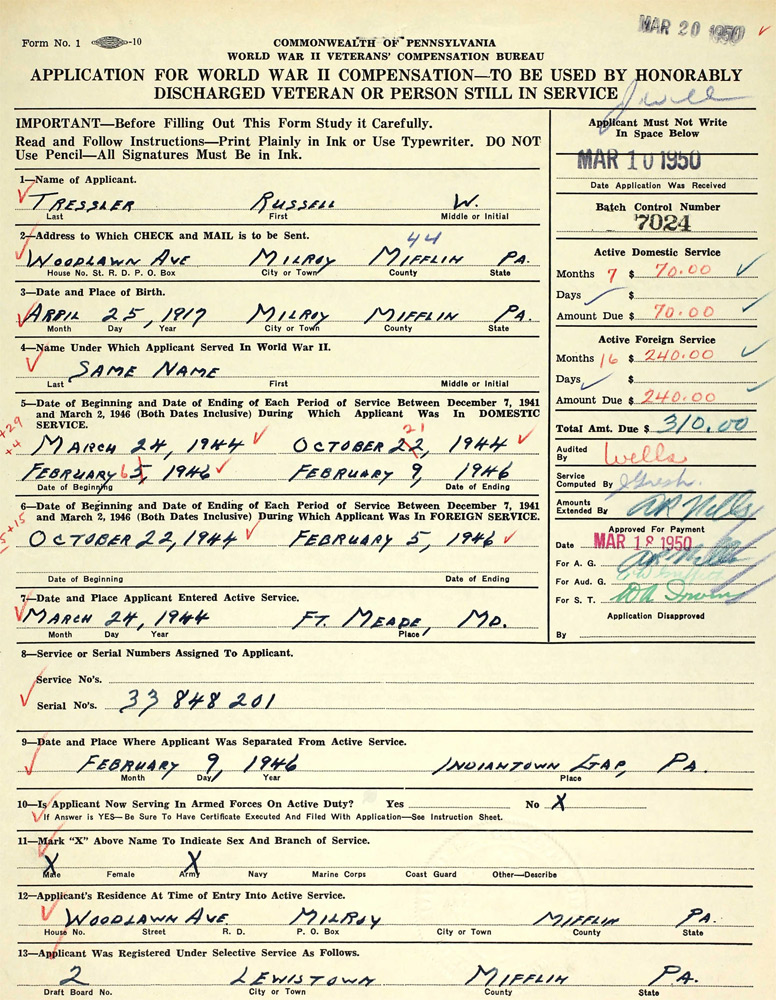 MAR 20 1950
Form No. 1 -10
COMMONWEALTH OF PENNSYLVANIA
WORLD WAR II VETERANS' COMPENSATION BUREAU
APPLICATION FOR WORLD WAR II COMPENSATION—TO BE USED BY HONORABLY
DISCHARGED VETERAN OR PERSON STILL IN SERVICE
IMPORTANT—Before Filling Out This Form Study it Carefully.
Read and Follow Instructions—Print Plainly in Ink or Use Typewriter. DO NOT
Use Pencil—All Signatures Must Be in Ink.
1—Name of Applicant.
TRESSLER RUSSELL W.
Last First Middle or Initial
2—Address to Which CHECK and MAIL is to be Sent.
44
WOODLAWN AVE MILROY MIFFLIN PA.
House No. St. R. D. P. O. Box City or Town County State
3—Date and Place of Birth.
APRIL 25, 1917 MILROY MIFFLIN PA.
Month Day Year City or Town County State
4—Name Under Which Applicant Served In World War II.
SAME NAME
Last First Middle or Initial
5—Date of Beginning and Date of Ending of Each Period of Service Between December 7, 1941
and March 2, 1946 (Both Dates Inclusive) During Which Applicant Was In DOMESTIC
SERVICE.
+29
+4
21
MARCH 24, 1944 OCTOBER 22, 1944
FEBRUARY 6 5, 1946 FEBRUARY 9, 1946
Date of Beginning Date of Ending
6—Date of Beginning and Date of Ending of Each Period of Service Between December 7, 1941
and March 2, 1946 (Both Dates Inclusive) During Which Applicant Was In FOREIGN SERVICE.
5+15
OCTOBER 22, 1944 FEBRUARY 5, 1946
Date of Beginning Date of Ending
7—Date and Place Applicant Entered Active Service.
MARCH 24, 1944 FT. MEADE, MD.
Month Day Year Place
Applicant Must Not Write
In Space Below
MAR 10 1950
Date Application Was Received
Batch Control Number
7024
Active Domestic Service
Months 7 $ 70.00
Days $
Amount Due $ 70.00
Active Foreign Service
Months 16 $ 240.00
Days $
Amount Due $ 240.00
Total Amt. Due $ 310.00
Audited
By Wells
Service
Computed By
Amounts
Extended By
Approved For Payment
Date MAR 18 1950
For A. G.
For Aud. G.
For S. T.
Application Disapproved
By
8—Service or Serial Numbers Assigned To Applicant.
Service No's.
Serial No's. 33 848 201
9—Date and Place Where Applicant Was Separated From Active Service.
FEBRUARY 9, 1946 INDIANTOWN GAP, PA.
Month Day Year Place
10—Is Applicant Now Serving In Armed Forces On Active Duty? Yes No X
If Answer is YES—Be Sure To Have Certificate Executed And Filed With Application—See Instruction Sheet.
11—Mark "X" Above Name To Indicate Sex and Branch of Service.
X X
Male Female Army Navy Marine Corps Coast Guard Other—Describe
12—Applicant's Residence At Time of Entry Into Active Service.
WOODLAWN AVE. MILROY MIFFLIN PA.
House No. Street R. D. P. O. Box City or Town County State
13—Applicant Was Registered Under Selective Service As Follows.
2 LEWISTOWN MIFFLIN PA.
Draft Board No. City or Town County State